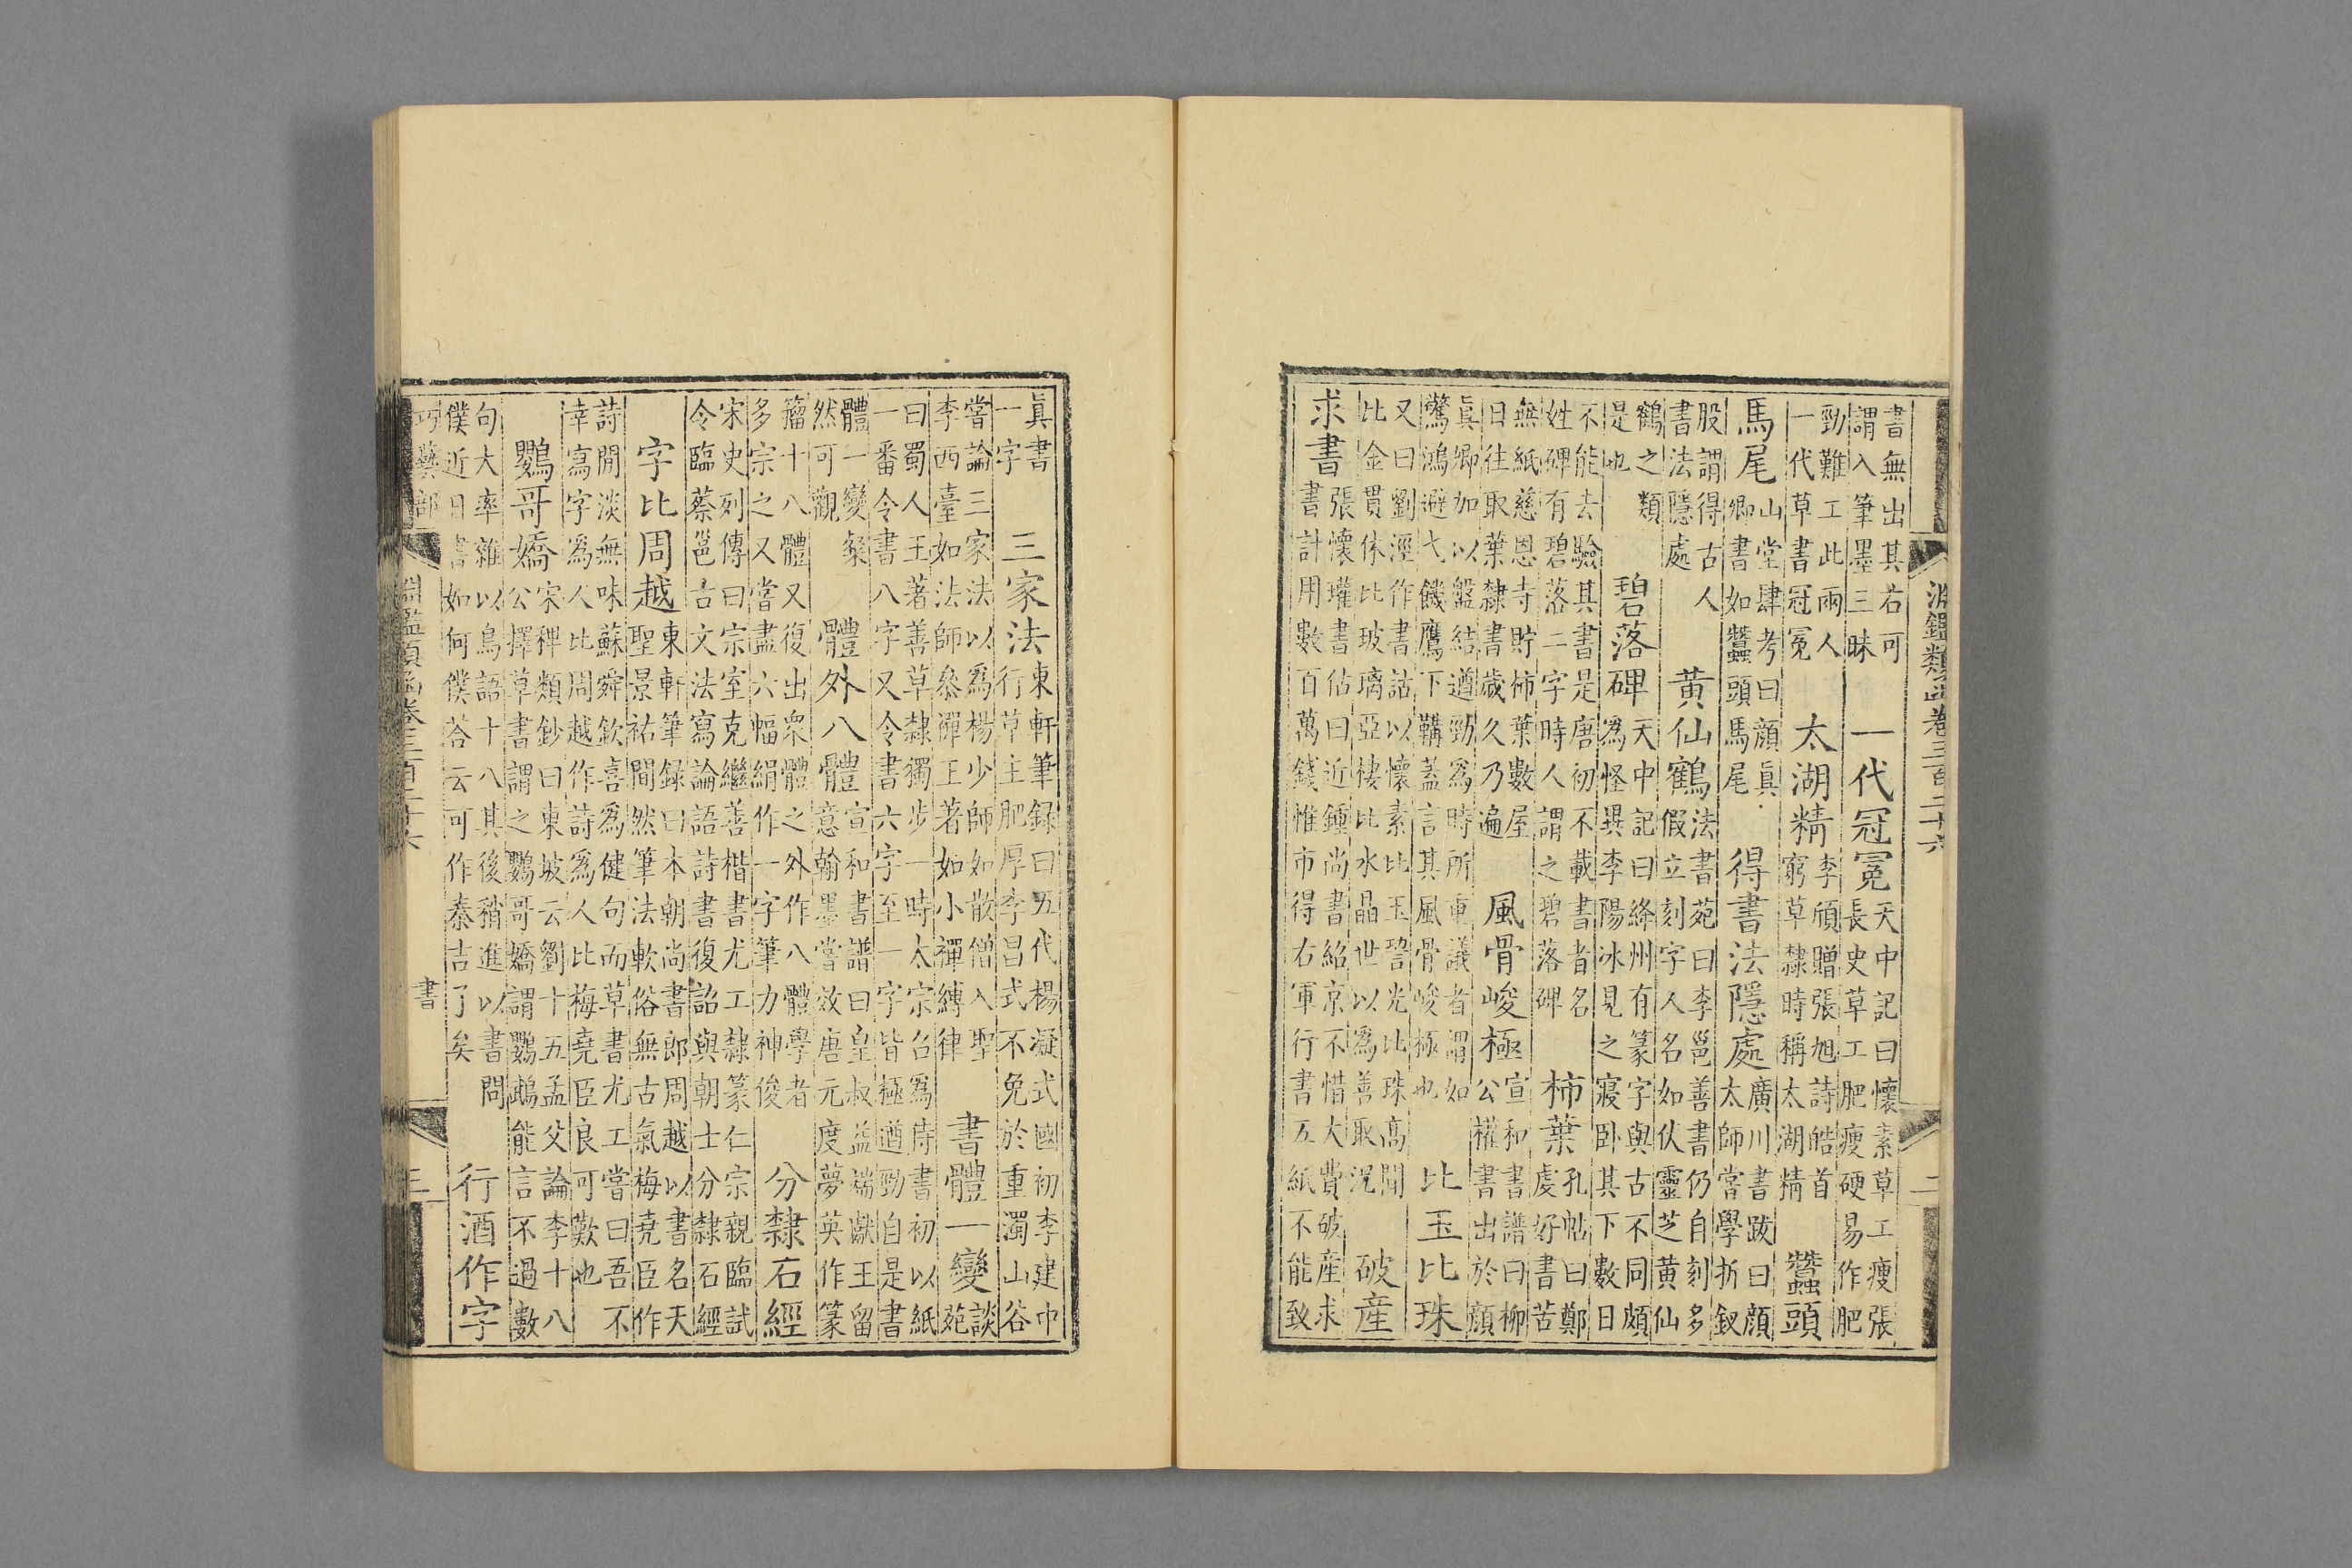 淵鑑類函卷三百二十六 二
書無出其右可
謂入筆墨三昧
一代冠冕
天中記曰懷素草工瘦張
長史草工肥瘦硬易作肥
勁難工此兩人
一代草書冠冕
太湖精
李頎贈張旭詩皓首
窮草隸時稱太湖精
蠶頭
馬尾
山堂肆考曰顔眞
卿書如蠶頭馬尾
得書法隱處
廣川書跋曰顔
太師嘗學折釵
股謂得古人
書法隱處
黄仙鶴
法書苑曰李邕善書仍自刻多
假立刻字人名如伏靈芝黄仙
鶴之類
是也
碧落碑
天中記曰絳州有篆字與古不同頗
爲怪異李陽冰見之寢卧其下數日
不能去驗其書是唐初不載書者名
姓碑有碧落二字時人謂之碧落碑
柿葉
孔帖曰鄭
虔好書苦
無紙慈恩寺貯柿葉數屋
日往取葉隸書歲久乃遍
風骨峻極
宣和書譜曰柳
公權書出於顔
眞卿如以盤結遒勁爲時所重議者謂如
驚鴻避弋饑鷹下鞲蓋言其風骨峻極也
比玉比珠
又曰劉涇作書詁以懷素比玉䛒光比珠高閒
比金貫休比玻璃亞棲比水晶世以爲善取況
破産
求書
張懷瓘書估曰近鍾尚書紹京不惜大費破産求
書計用數百萬錢惟市得右軍行書五紙不能致
眞書
一字
三家法
東軒筆録曰五代楊凝式國初李建中
行草主肥厚李昌式不免於重濁山谷
嘗論三家法以爲楊少師如散僧入聖
李西臺如法師叅禪王著如小禪縛律
書體一變
談
苑
曰蜀人王著善草隸獨步一時太宗召爲侍書初以紙
一番令書八字又令書六字至一字皆極遒勁自是書
體一變粲
然可觀
體外八體
宣和書譜曰皇叔益端獻王留
意翰墨嘗效唐元度夢英作篆
籀十八體又復出衆體之外作八體學者
多宗之又嘗盡六幅絹作一字筆力神俊
分隸石經
宋史列傳曰宗室克繼善楷書尤工隸篆仁宗親臨試
令臨蔡邕古文法寫論語詩書復詔與朝士分隸石經
字比周越
東軒筆録曰本朝尚書郎周越以書名天
聖景祐間然筆法軟俗無古氣梅堯臣作
詩閒淡無味蘇舜欽喜爲健句而草書尤工嘗曰吾不
幸寫字爲人比周越作詩爲人比梅堯臣良可歎也
鸚哥嬌
宋稗類鈔曰東坡云劉十五孟父論李十八
公擇草書謂之鸚哥嬌謂鸚鵡能言不過數
句大率雜以鳥語十八其後稍進以書問
僕近日書如何僕答云可作秦吉了矣
行酒作字
巧藝部 淵鑑類函卷三百二十六 書 三